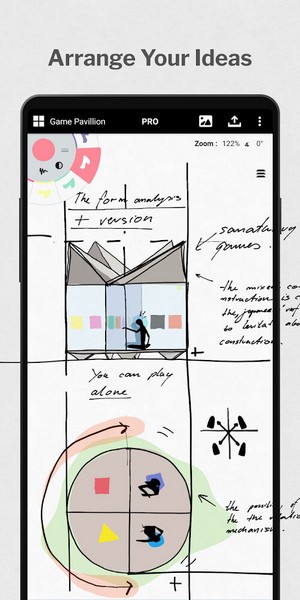 Arrange Your Ideas
Game Pavillion
PRO
Zoom : 122% 0°
The form analysis
+ version
games.
the mixed co
nstruction is c
the japanese
to levitat abo
construction.
You can play
alone
the
the the
mechanism.